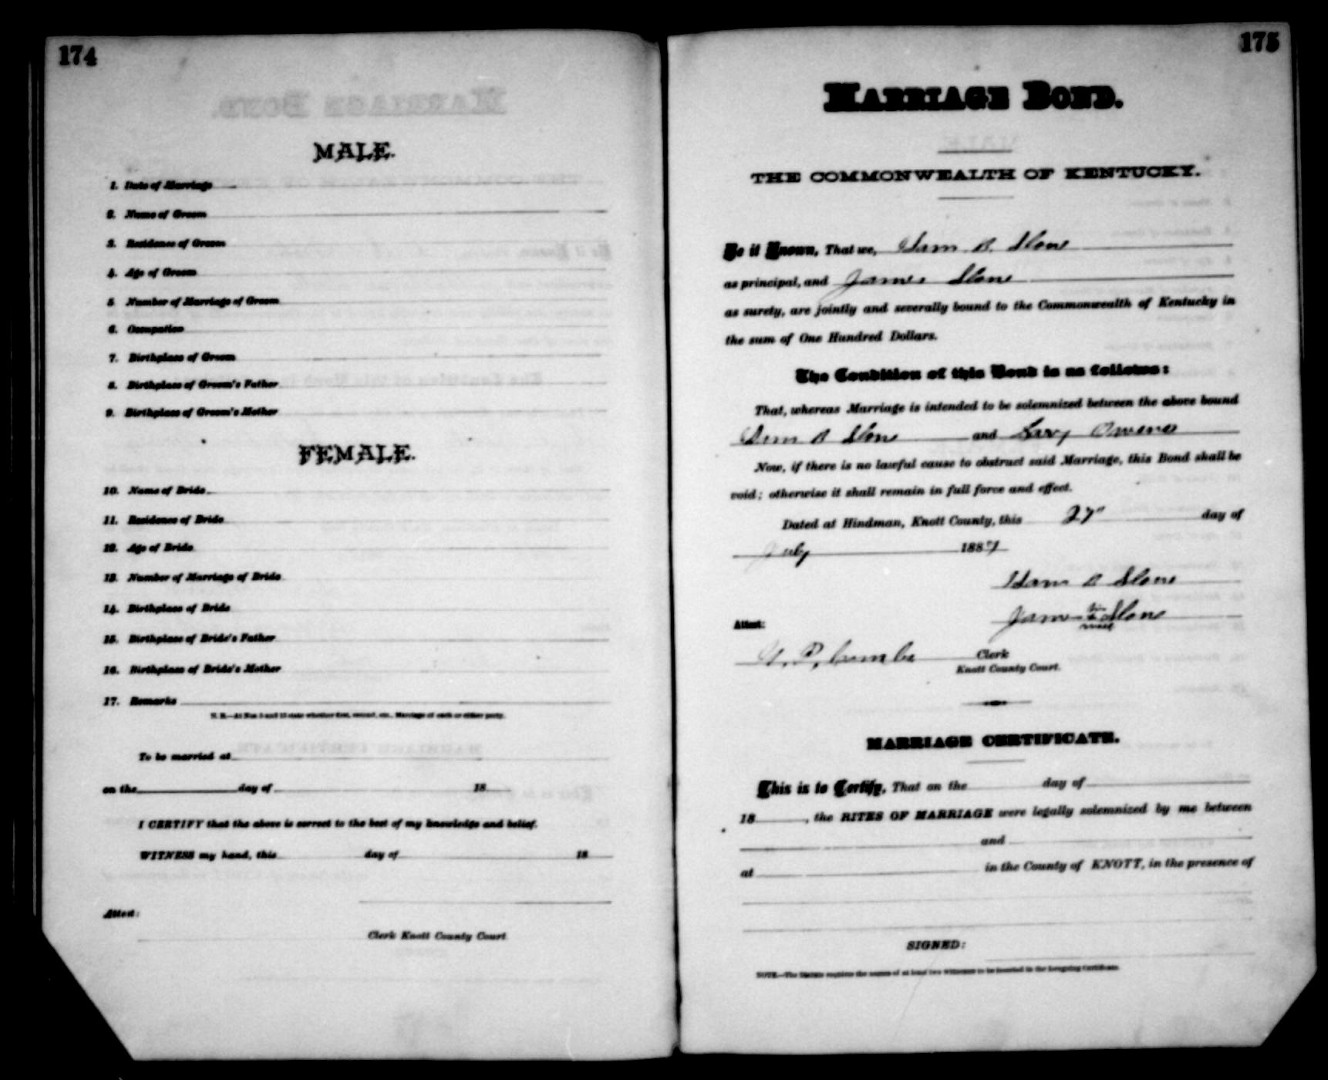 174
MALE.
1. Date of Marriage
2. Name of Groom
3. Residence of Groom
4. Age of Groom
5 Number of Marriage of Groom
6. Occupation
7. Birthplace of Groom
8. Birthplace of Groom's Father
9. Birthplace of Groom's Mother
FEMALE.
10. Name of Bride
11. Residence of Bride
12. Age of Bride
13. Number of Marriage of Bride
14. Birthplace of Bride
15. Birthplace of Bride's Father
16. Birthplace of Bride's Mother
17. Remarks
N. B.—At Nos 5 and 13 state whether first, second, etc., Marriage of each or either party.
To be married at
on the day of 18
I CERTIFY that the above is correct to the best of my knowledge and belief.
WITNESS my hand, this day of 18
Attest:
Clerk Knott County Court
175
MARRIAGE BOND.
THE COMMONWEALTH OF KENTUCKY.
Be it Known, That we, B. Slone
as principal, and James Slone
as surety, are jointly and severally bound to the Commonwealth of Kentucky in
the sum of One Hundred Dollars.
The Condition of this Bond is as follows:
That, whereas Marriage is intended to be solemnized between the above bound
B Slone and Owens
Now, if there is no lawful cause to obstruct said Marriage, this Bond shall be
void; otherwise it shall remain in full force and effect.
Dated at Hindman, Knott County, this 27" day of
July 188
B Slone
James his x mark Slone
Attest:
Clerk
Knott County Court.
MARRIAGE CERTIFICATE.
This is to Certify, That on the day of
18 , the RITES OF MARRIAGE were legally solemnized by me between
and
at in the County of KNOTT, in the presence of
SIGNED:
NOTE.—The Statute requires the names of at least two Witnesses to be inserted in the foregoing Certificate.